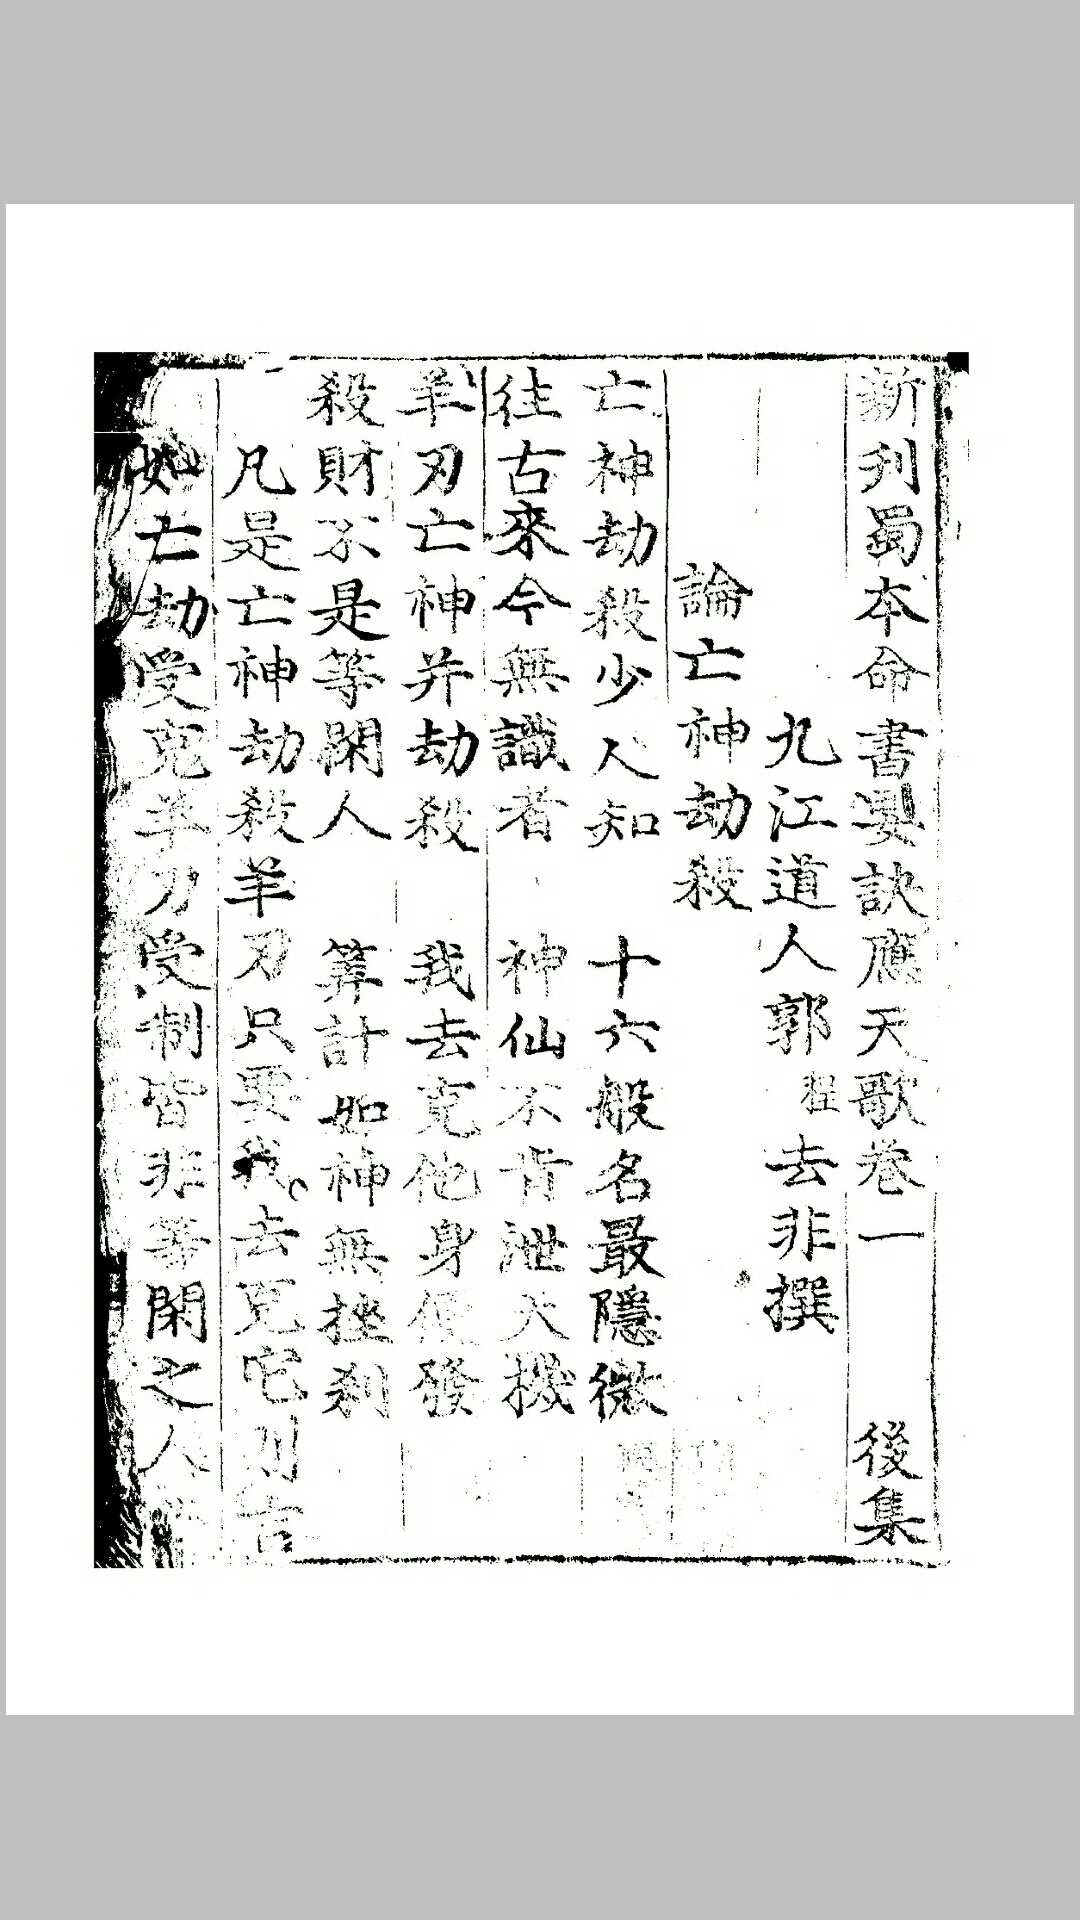 新刊蜀本命書要訣應天歌卷一 後集
九江道人郭程去非撰
論亡神劫殺
亡神劫殺少人知 十六般名最隱微
往古來今無識者 神仙不肯泄天機
羊刃亡神并劫殺 我去克他身便發
殺財不是等閑人 筭計如神無挫剎
凡是亡神劫殺羊刃只要我去克它則吉
如亡劫受克羊刃受制皆非等閑之人